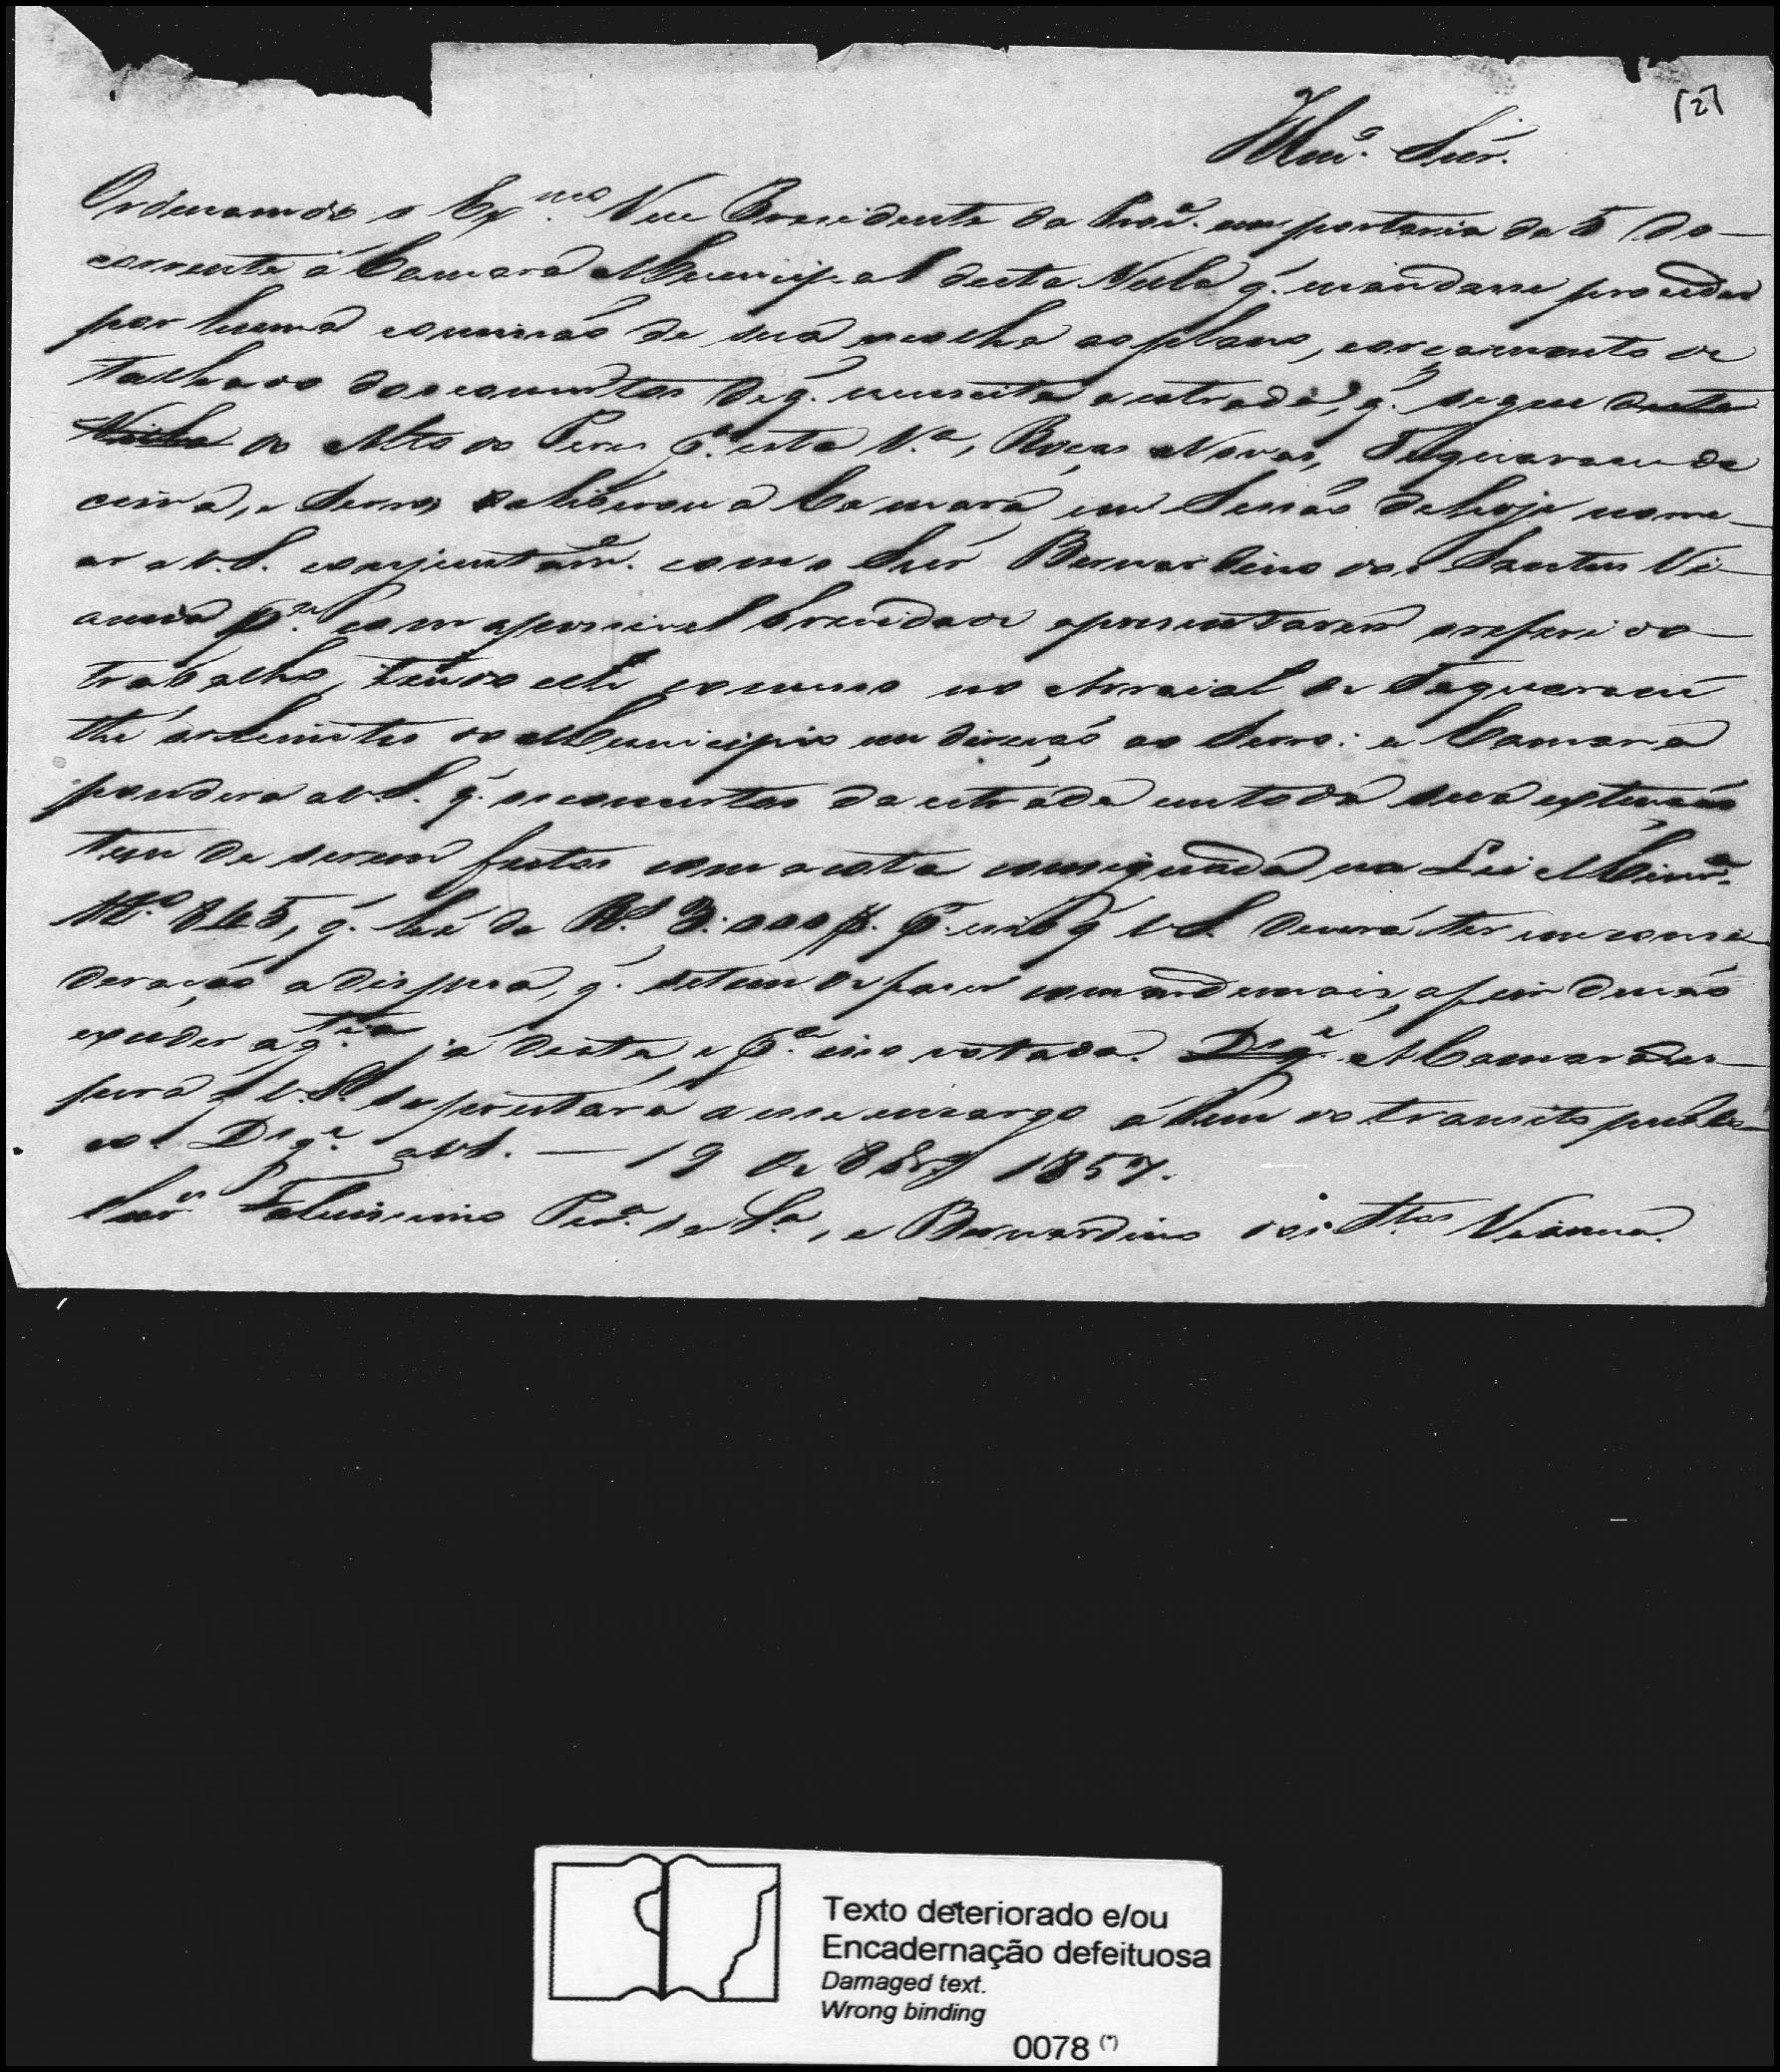 [2]
Illmº. Snr.
Ordenando o Exmo. Vice Presidente da Provª. em portaria de 5 do
corrente á Camara Municipal desta Villa q'. mandasse proceder
por huma commissão de sua escolha ao plano, e orçamento de
talhado dos concertos de q'. necessita a estrada, q'. segue desta
Villa do Alto do Peres pª. esta Vª., Roças Novas, Taquarassu de
cima, e Serro, deliberou a Camara em Sessão de hoje nome-
ar a V.S. conjuntamᵉ. com o Snr Bernardino dos Santos Vi-
anna pª. com a possivel brevidade apresentarem o referido
trabalho, tendo elle comesso no Arraial de Taquarassú
thé os limites do Municipio em direcção ao Serro: a Camara
pondera a V.S. q'. os concertos da estrada em toda sua extensão
tem de serem feitos com a cota consignada na Lei Minrª.
Nº. 845, q'. hé de Rs. 3:000$. pr. isso q' V.S. deverá ter em consi-
deração a despesa, q'. se tem de faser com os demais, a fim de não
exceder a qtia. já desta, e pª. isso votada. Ds. gᵉ. A Camara es-
pera q' V.S. se prestará a esse encargo á bem do transito publi-
co. Ds. gᵉ. a V.S. — 19 de 8br.º 1857.
Snrˢ. Felicissimo Perª. da Sª., e Bernardino dos Stos Vianna.
Texto deteriorado e/ou
Encadernação defeituosa
Damaged text.
Wrong binding
0078 (*)